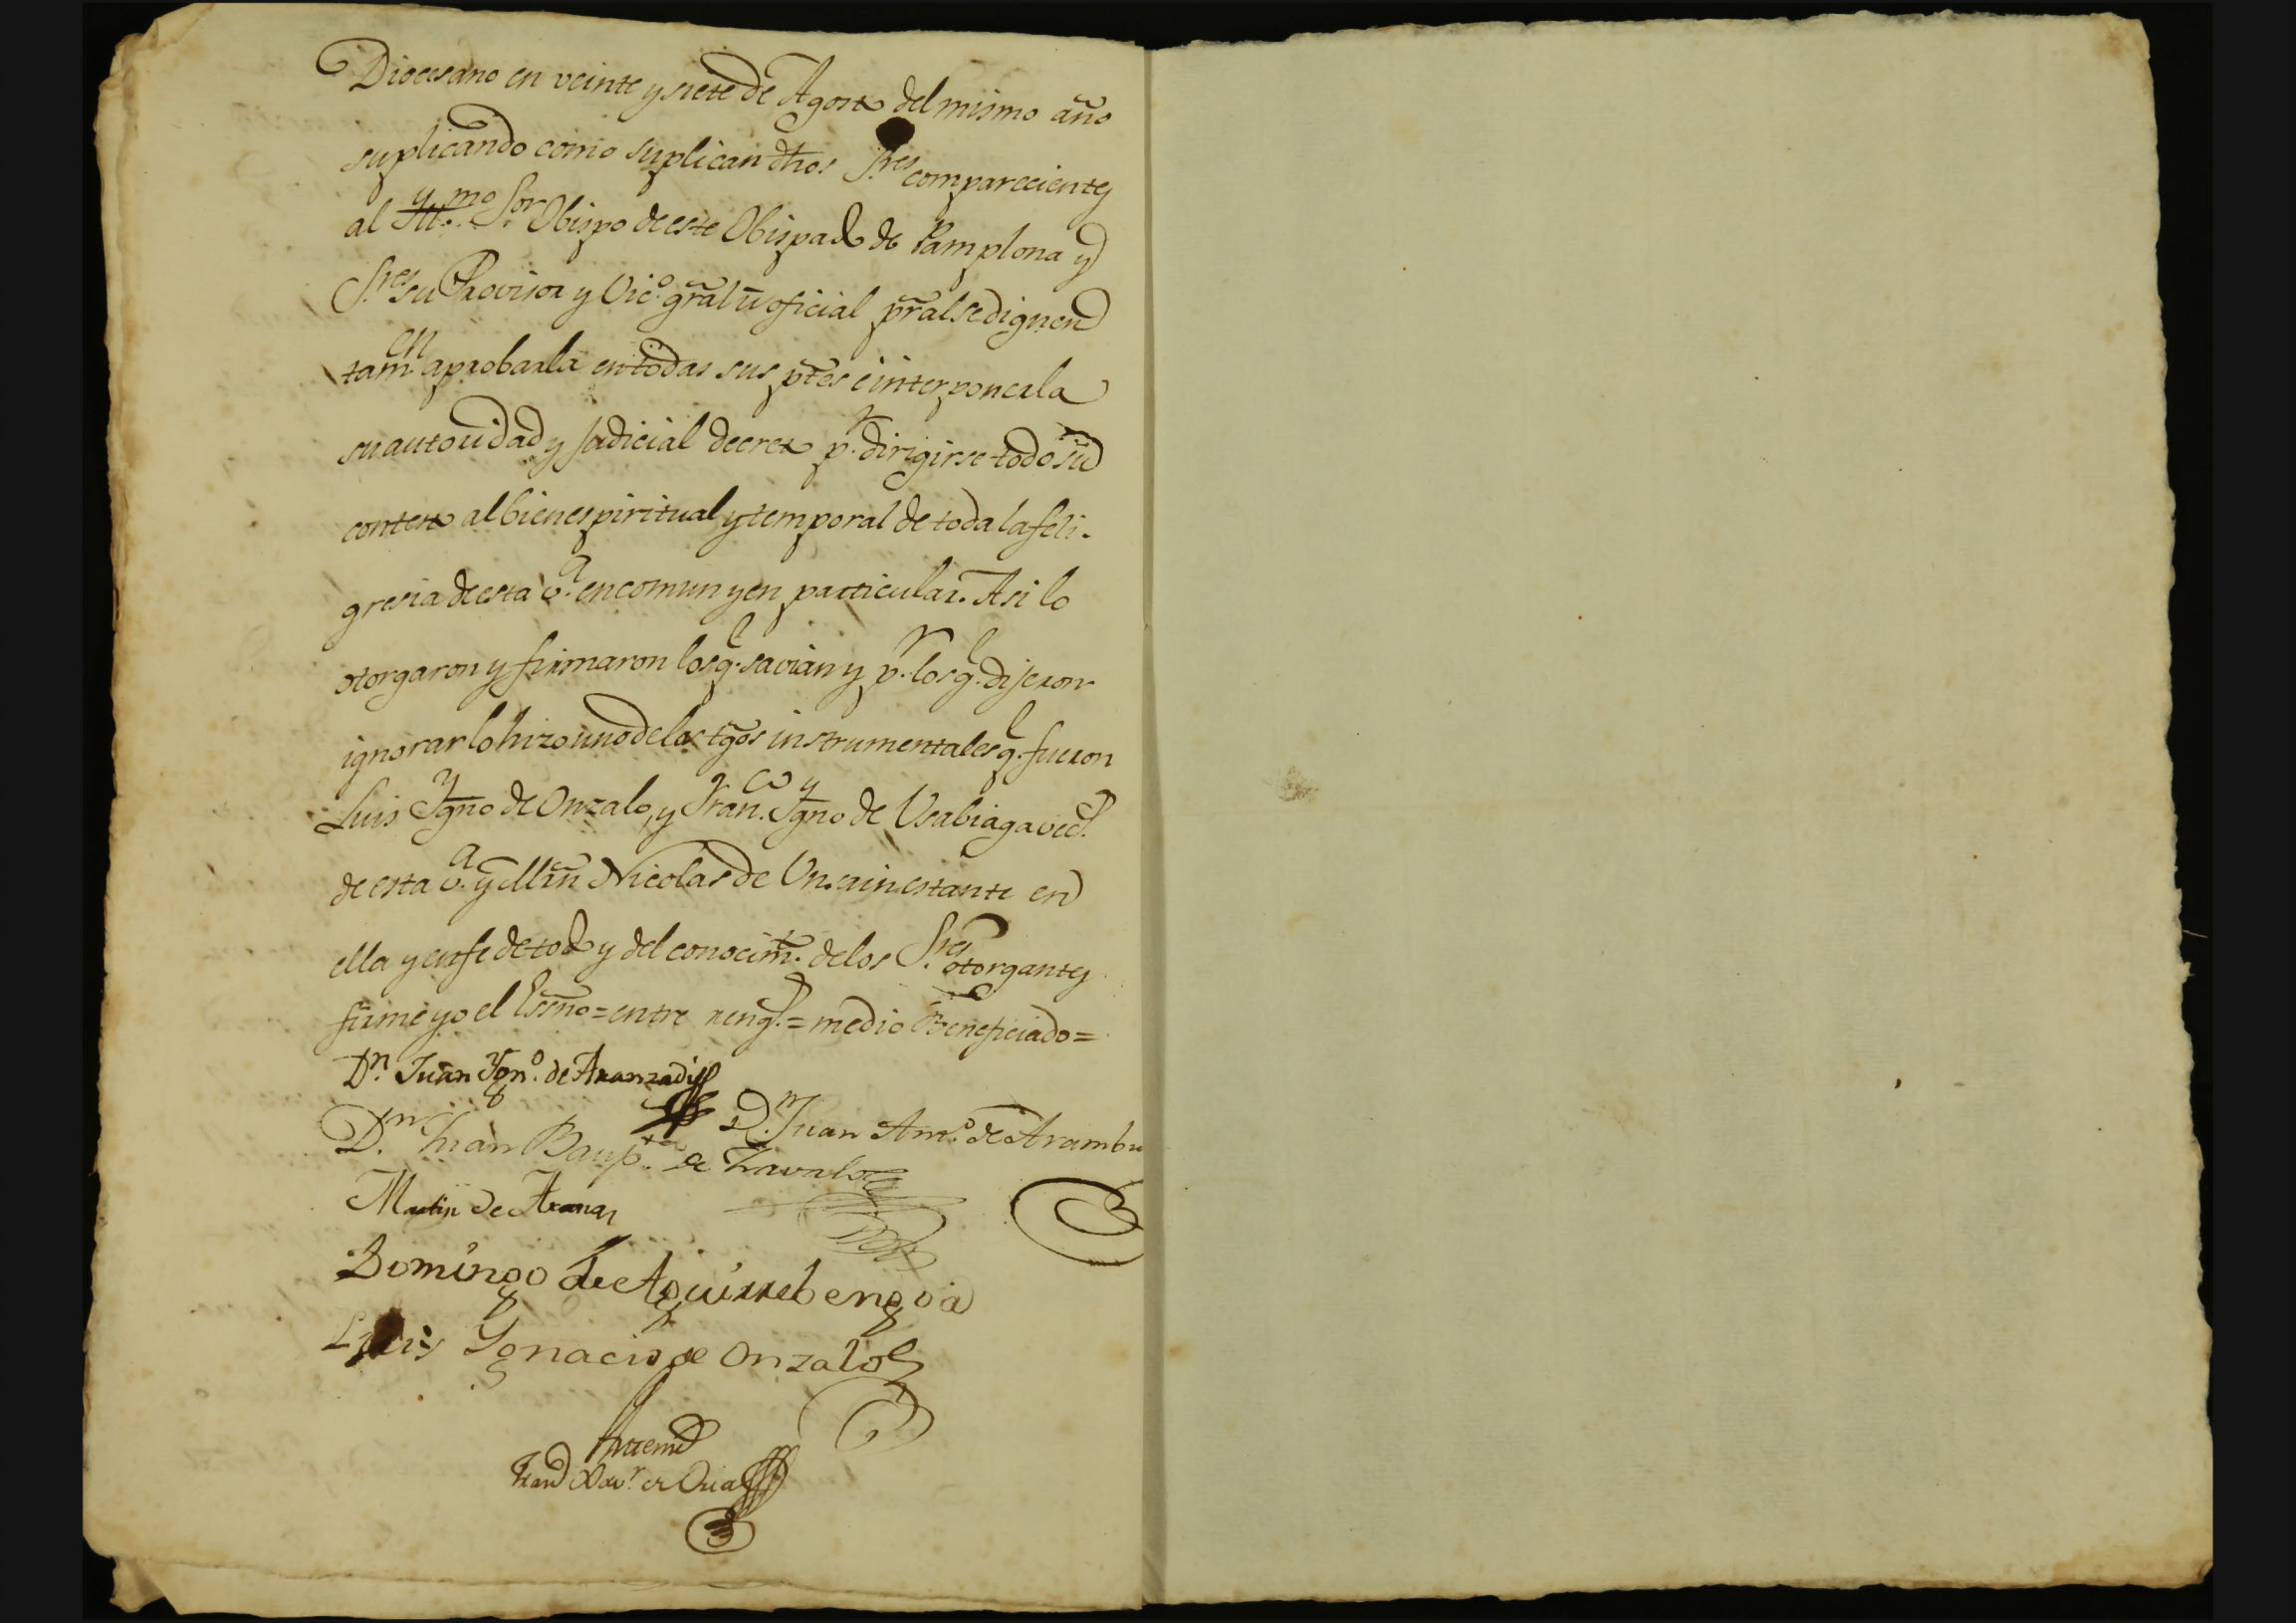 Diocesano en veinte y siete de Agosto del mismo año
suplicando como suplican dhos. S.res comparecientes
al Yll.mo S.or Obispo de este Obispado de Pamplona y
S.res su Provisor y Vic.o gr̃al ũ oficial pr̃al se dignen
tam.en aprobarla en todas sus ptẽs e interponerla
su autoridad y judicial decreto p.r dirigirse todo su
contesto al bien espiritual y temporal de toda la feli-
gresia de esta v.a en comun y en particular. Asi lo
otorgaron y firmaron los q.e savian y p.r los q.e dijeron
ignorar lo hizo uno de los tg̃os instrumentales q.e fueron
Luis Ygno de Onzalo, y Fran.co Ygno de Usabiaga vec.s
de esta v.a y Mr̃n Nicolas de Unsain estante en
ella y en fe de todo y del conocim.to de los S.res otorgantes
firmé yo el Esñno = entre reng.s = medio Beneficiado =
D.n Juan Ygn.o de Aranzadi
D.n Juan Ant.o de Arambu
D.n Juan Baup.ta de Zavalo
Martin de Arana
Domingo de Aguirrebengoa
Luis Ygnacio de Onzalo
Antemi
Fran Xav.r de Oria